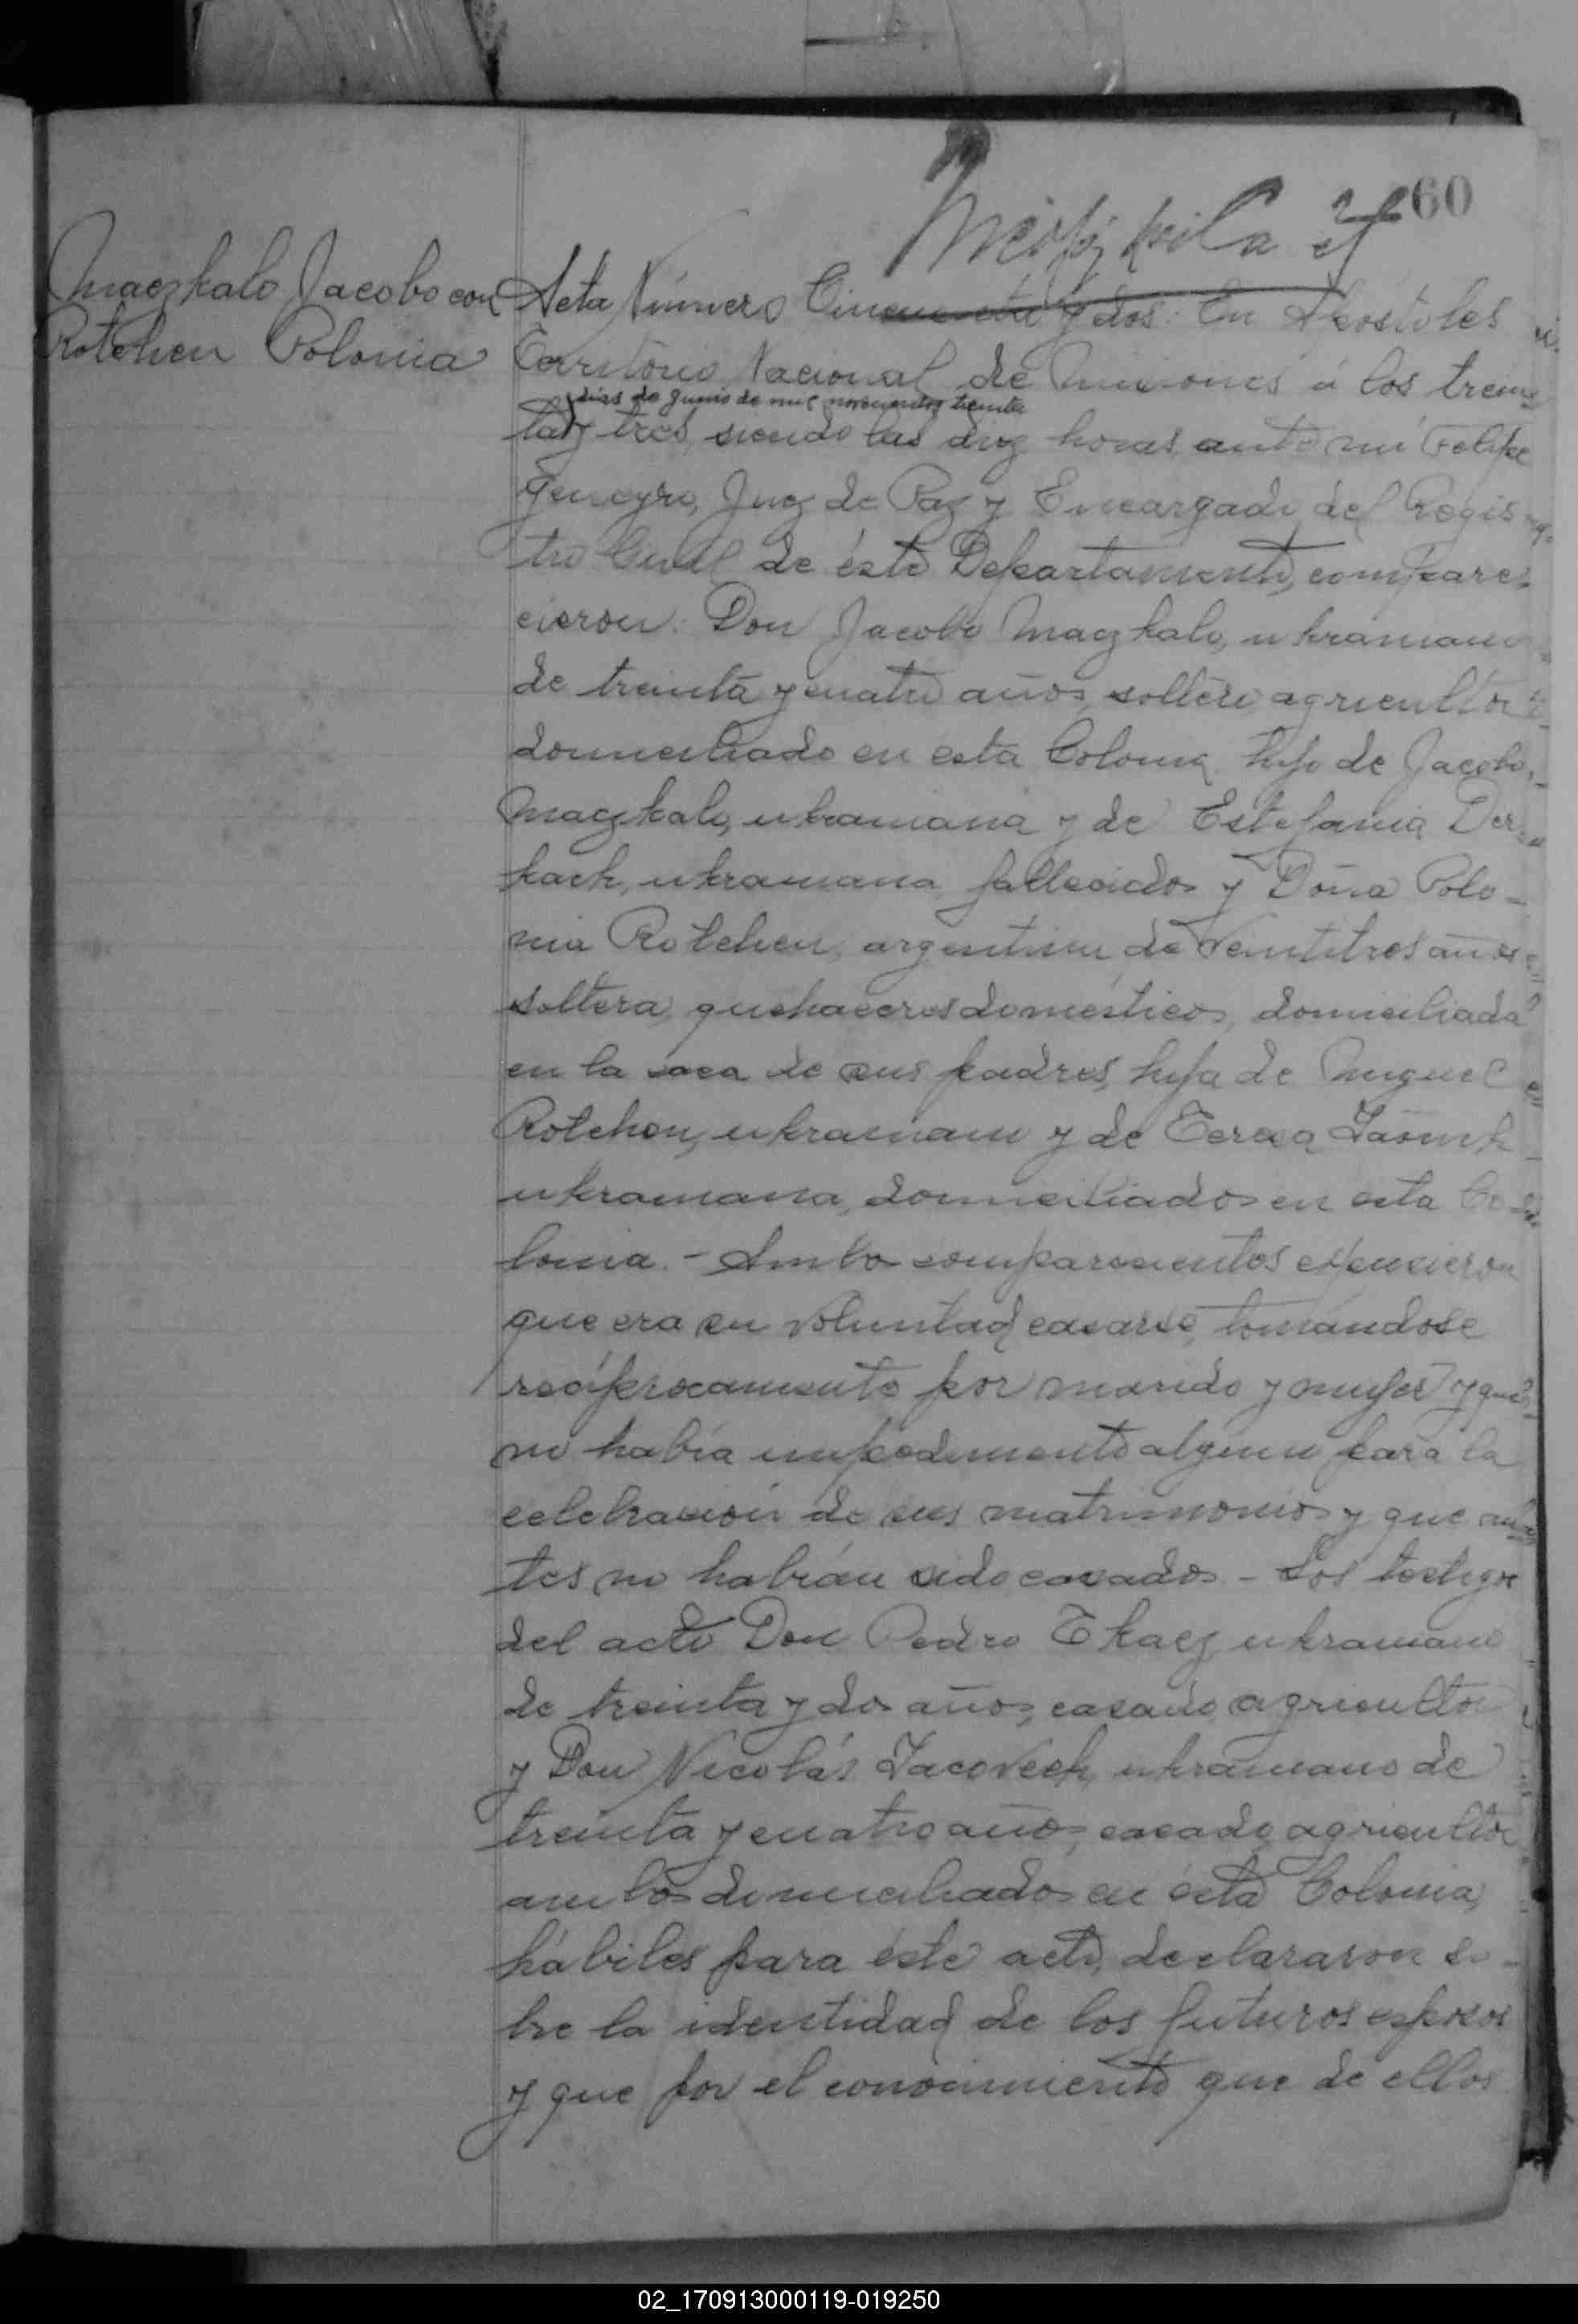 60
Maczkalo Jacobo con
Rotchen Polonia
Acta Número Cincuenta y dos: En Apóstoles
Territorio Nacional de Misiones á los trein-
dias de Junio de mil novecientos treinta
ta y tres, siendo las diez horas, ante mi Felipe
Geneyro, Juez de Paz y Encargado del Regis-
tro Civil de éste Departamento, compare-
cieron: Don Jacobo Maczkalo, ukraniano
de treinta y cuatro años, soltero, agricultor
domiciliado en esta Colonia, hijo de Jacobo
Maczkalo, ukraniana y de Estefania Der-
kach, ukraniana, fallecidos y Doña Polo-
nia Rotchen, argentina de veintitres años
soltera, quehaceres domésticos, domiciliada
en la casa de sus padres, hija de Miguel
Rotchen, ukraniano y de Teresa
ukraniana, domiciliados en esta Co-
lonia. - Ambos comparecientos expusieron
que era su voluntad casarse, tomándose
recíprocamente por marido y mujer y que
no había impedimento alguno para la
celebración de sus matrimonio y que an-
tes no habían sido casados - Los testigos
del acto Don Pedro Tkacz ukraniano
de treinta y dos años, casado, agricultor
y Don Nicolás Iacovech, ukraniano de
treinta y cuatro años, casado, agricultor
ambos domiciliados en ésta Colonia,
hábiles para éste acto, declararon so-
bre la identidad de los futuros esposos
y que por el conocimiento que de ellos
02_170913000119-019250